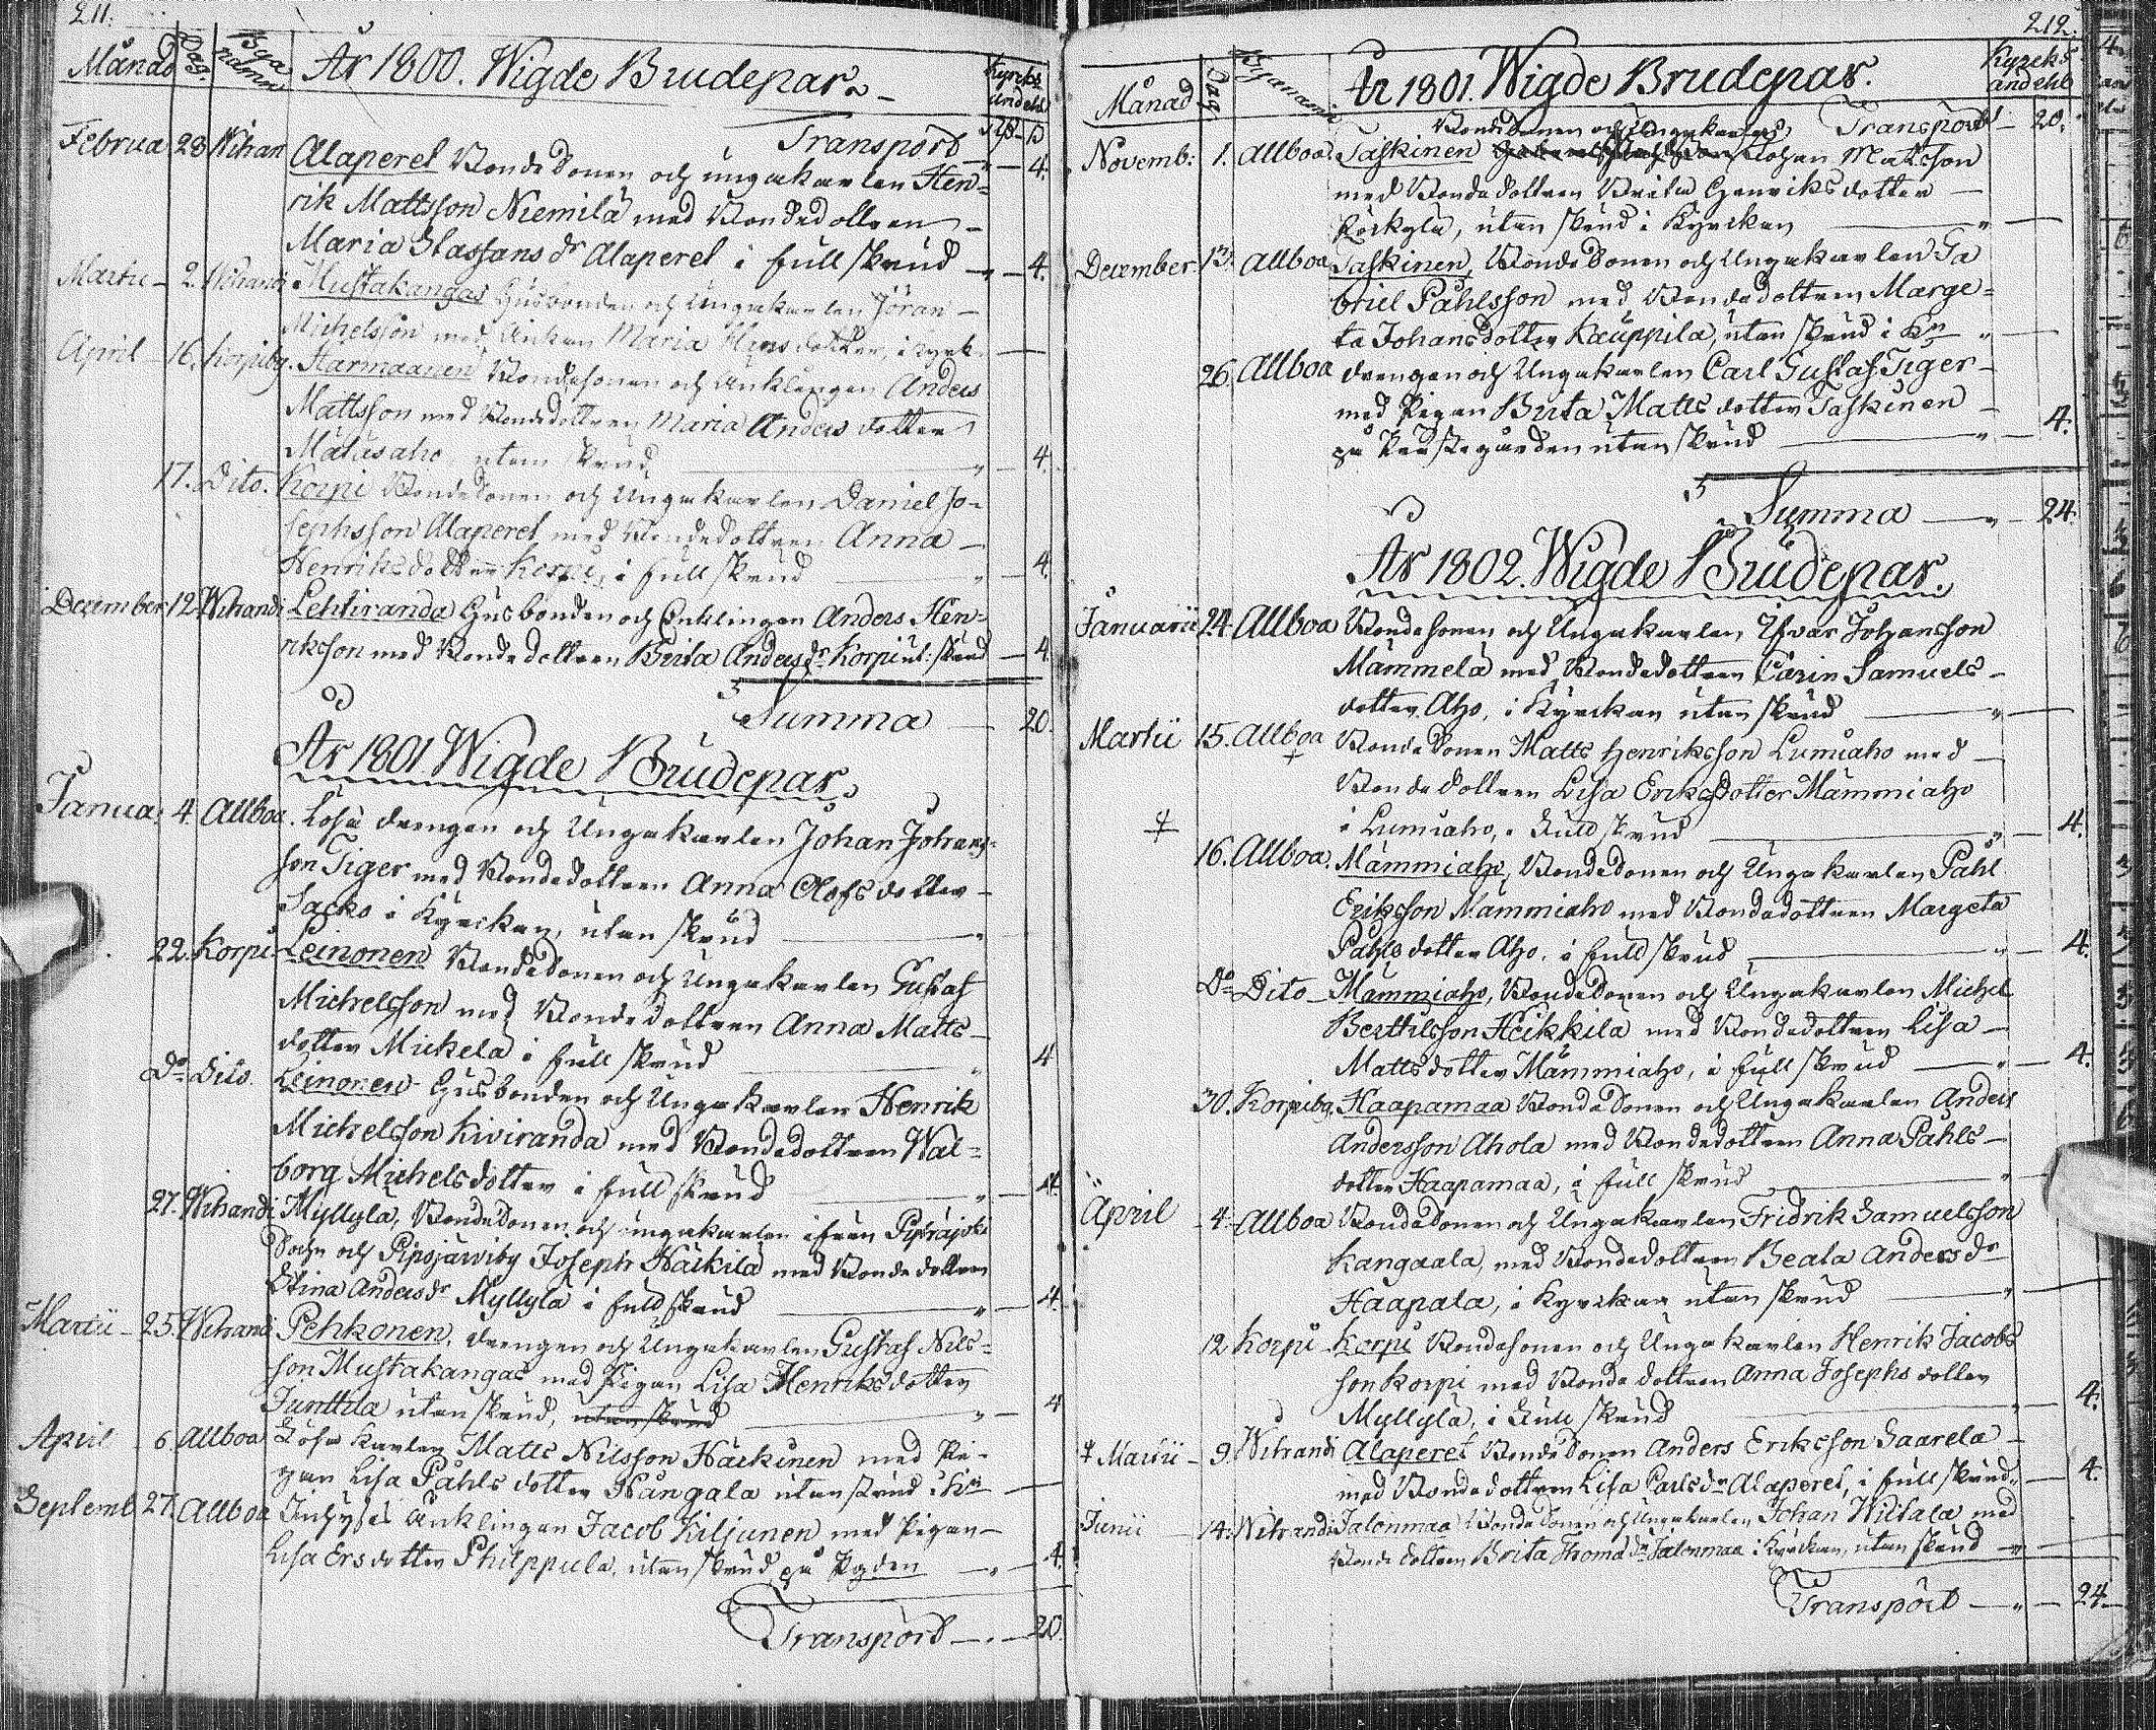 211.
Månad Dag. Byanamn År 1800. Wigde Brudepar. Kyrks andehl
Transport
Februa 23 Wihan Alaperet Bondesonen och ungakarlen Hen= 4.
rik Mattsson Niemilä med Bondedottren
Maria Stassans dr Alaperet i full skrud 4.
Martii 2. Wihandi Mustakangas Husbonden och Ungakarlen Jöran
Michelsson med Änkan Maria dotter, i Kyrk.
April 16. Korpiby. Harmaanen Bondesonen och Änklingen Anders
Mattsson med Bondedottren Maria Anders dotter
Matusaho, utan skrud 4.
17. Dito. Korpi Bondesonen och Ungakarlen Daniel Jo=
sephsson Alaperet med Bondedottren Anna
Henriksdotter Korpi, i full skrud 4.
December 12. Wihandi Lehtiranda Husbonden och Enklingen Anders Hen=
riksson med Bondedottren Brita Anders dr Korpi ut: skrud 4.
Summa 20.
År 1801 Wigde Brudepar.
Janua: 4. Allboa. Löse drengen och Ungakarlen Johan Johans=
son Tiger med Bondedottren Anna Olofs dotter
Sacko i Kyrckan, utan skrud
22. Korpi Leinonen Bondesonen och Ungakarlen Gustaf
Michelsson med Bondedottren Anna Matts
dotter Mickelä i full skrud 4
Do Dito. Leinonen Husbonden och Ungakarlen Henrik
Michelsson Kiviranda med Bondedottren Wal=
borg Michelsdotter i full skrud 4.
27. Wihandi Myllylä, Bondesonen och ungakarlen ifrån
Sochn och Pipsjärwiby Joseph Häikilä med Bondedottren
Stina Anders dr Myllylä i full skrud 4.
Martii 25. Wihandi Pehkonen, drengen och Ungakarlen Gustaf Nils=
son Mustakangas med Pigan Lisa Henriksdotter
Junttila utan skrud, utan skrud 4
April 6. Allboa Löse karlen Matts Nilsson Härkinen med Pi=
gan Lisa Påhls dotter Kångala utan skrud i Kn
Septemb 27. Allboa Inhyses Änklingen Jacob Kiljunen med Pigan
Lisa Ersdotter Philppula, utan skrud, på Pgden 4.
Transport 20.
212.
Månad Dag. Byanamn År 1801. Wigde Brudepar. Kyrcks andehl
Bondesonen och Ungakarlen Transport 20.
Novemb: 1. Allboa. Taskinen Johan Matsson
med Bondedottren Brita Henriksdotter
Röckylä, utan skrud i Kyrckan
December 13. Allboa Taskinen, Bondesonen och Ungakarlen Ga
briel Påhlsson med Bondedottren Marge=
ta Johansdotter Kauppila, utan skrud i Kn
26. Allboa drengen och Ungakarlen Carl Gustaf Tiger
med Pigan Brita Matts dotter Taskinen
på Prestegården utan skrud 4.
Summa 24.
År 1802. Wigde Brudepar.
Januarii 24. Allboa Bondesonen och Ungakarlen, Ifvar Johansson
Mämmelä med Bondedottren Carin Samuels
dotter Aho, i Kyrckan utan skrud
Martii 15. Allboa Bondesonen Matts Henriksson Lumiaho med
Bondedottren Lisa Eriksdotter Mämmiaho
i Lumiaho, i Full skrud 4.
16. Allboa. Mämmiaho, Bondesonen och Ungakarlen Påhl
Eriksson Mämmiaho med Bondedottren Margeta
Påhls dotter Aho, i full skrud 4.
Do Dito Mämmiaho, Bondesonen och Ungakarlen Michel
Berttilsson Heikkilä med Bondedottren Lisa
Matts dotter Mämmiaho, i full skrud 4.
30. Korpiby. Haapamaa Bondesonen och Ungakarlen Anders
Andersson Ahola med Bondedottren Anna Påhls
dotter Haapamaa, i full skrud
April 4. Allboa Bondesonen och Ungakarlen Fridrik Samuelsson
Kangaala, med Bondedottren Beata Anders dr
Haapala, i Kyrckan utan skrud
12 Korpi Korpi Bondesonen och Ungakarlen Henrik Jacobs
son Korpi med Bondedottren Anna Josephs dotter
Myllylä, i Full skrud 4.
Martii 9. Wihandi Alaperet Bondesonen Anders Eriksson Saarela
med Bondedottren Lisa Carls dr Alaperet, i full skrud 4.
Junii 14. Wihandi Jalonmaa Bondesonen och Ungakarlen Johan Wiitala med
Bondedottren Brita Thoma dr Jalonmaa i Kyrckan, utan skrud
Transport 24